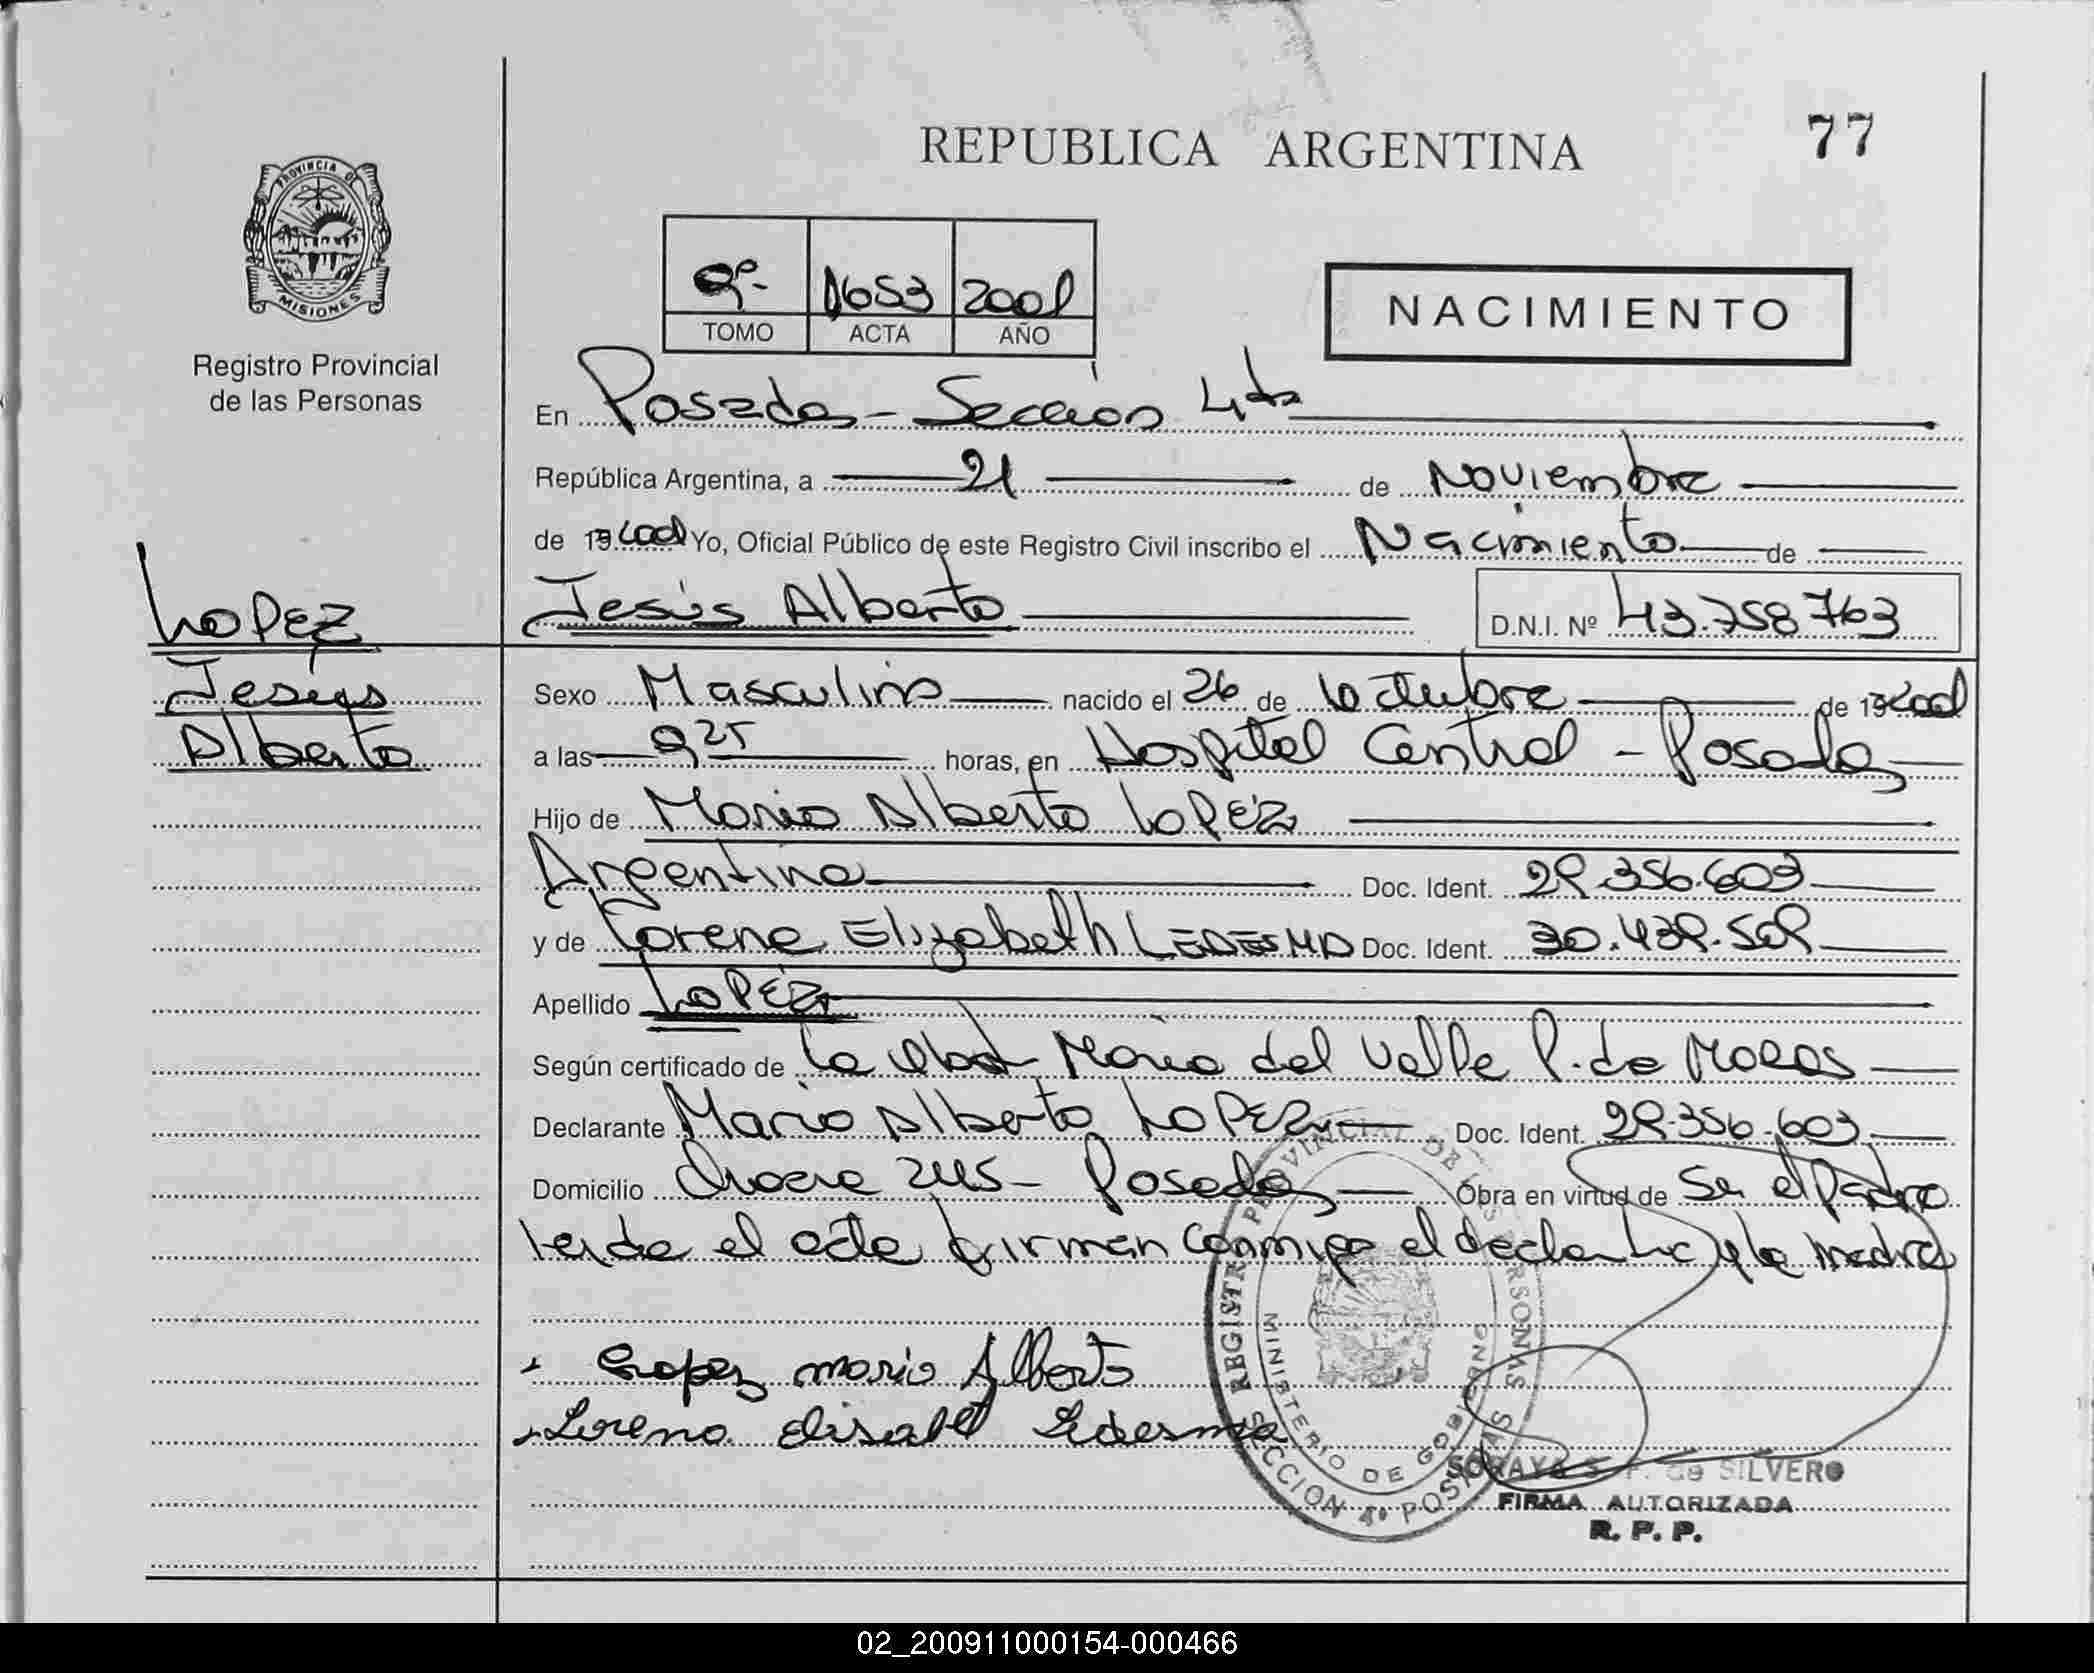 REPUBLICA ARGENTINA
77
PROVINCIA DE MISIONES
Registro Provincial
de las Personas
9º- 1653 2001
TOMO ACTA AÑO
NACIMIENTO
En Posadas - Sección 4ta
República Argentina, a 21 de Noviembre
de 2001 Yo, Oficial Público de este Registro Civil inscribo el Nacimiento de
LOPEZ
Jesús Alberto
D.N.I. Nº 43.758763
Jesús
Alberto
Sexo Masculino nacido el 26 de Octubre de 2001
a las 9 25 horas, en Hospital Central - Posadas
Hijo de Mario Alberto LOPEZ
Argentina Doc. Ident. 29.356.603
y de Lorena Elizabeth LEDESMA Doc. Ident. 30.439.509
Apellido LOPEZ
Según certificado de la Obst María del Valle P. de MORAS
Declarante Mario Alberto LOPEZ Doc. Ident. 29.356.603
Domicilio 245 - Posadas Obra en virtud de Ser el Padre
leída el acta firman conmigo el declarante y la madre
Lopez mario Alberto
Lorena Elisabet Ledesma
REGISTRO PROVINCIAL DE LAS PERSONAS
MINISTERIO DE GOBIERNO
SECCION 4º POSADAS
SORAYA S. F. de SILVERO
FIRMA AUTORIZADA
R. P. P.
02_200911000154-000466